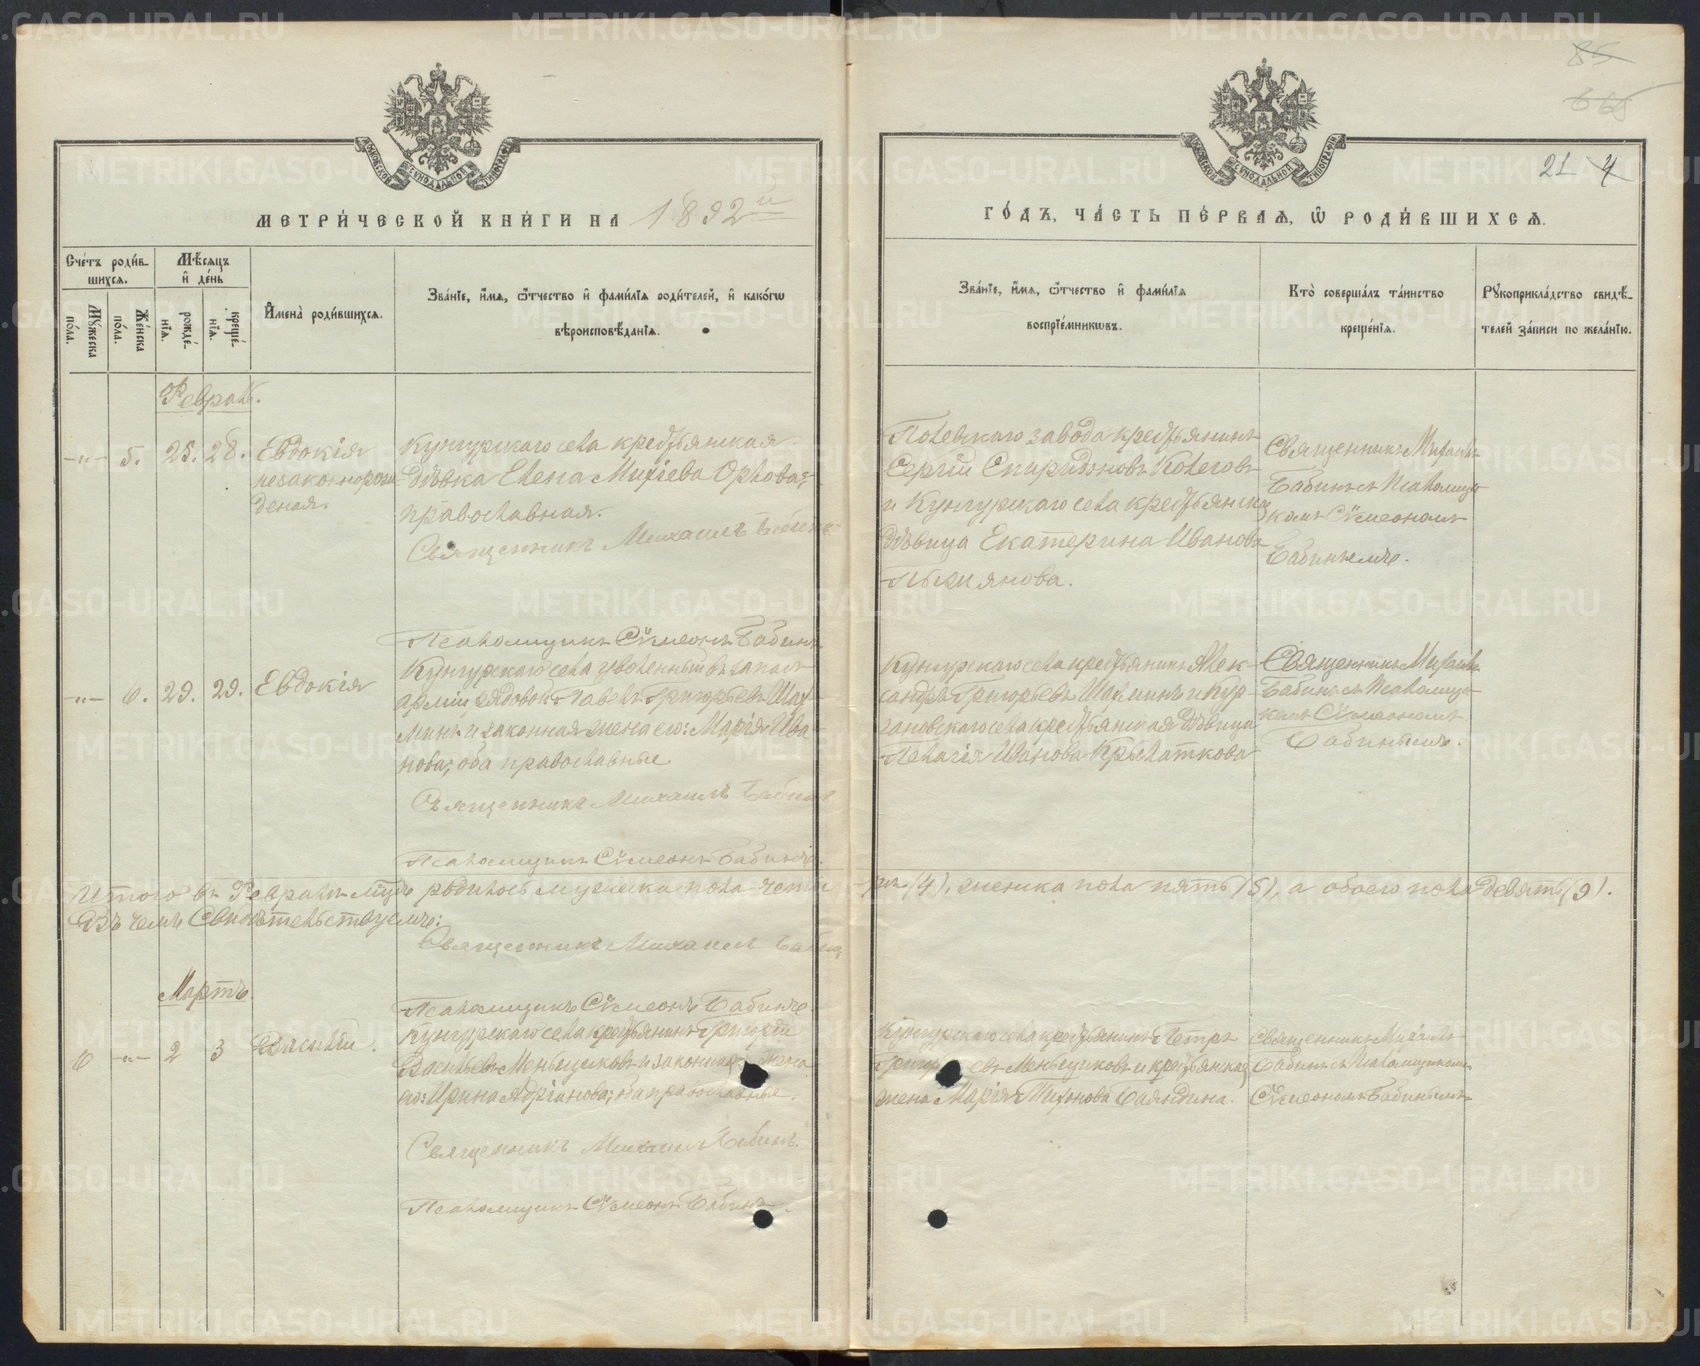 85
21 4
МЕТРИ́ЧЕСКОЙ КНИ́ГИ НА 1892й
ГО́ДЪ, ЧА́СТЬ ПЕ́РВАѦ, Ѡ҆ РОДИ́ВШИХСѦ.
Сче́тъ роди́в-
шихсѧ.
Мѣ́сѧцъ
и҆ де́нь
Мꙋ́жеска
по́ла.
Же́нска
по́ла.
рожде́-
нїѧ.
креще́-
нїѧ.
И҆мена̀ роди́вшихсѧ.
Зва́нїе, и҆́мѧ, ѻ҆́тчество и҆ фами́лїѧ роди́телей, и҆ како́гѡ
вѣроисповѣ́данїѧ.
Зва́нїе, и҆́мѧ, ѻ҆́тчество и҆ фами́лїѧ
воспрїе́мникѡвъ.
Кто̀ соверша́лъ та́инство
креще́нїѧ.
Рꙋкоприкла́дство свидѣ́-
телей за́писи по жела́нїю.
Февраль.
-"- 5. 25. 28. Евдокія
незаконнорож
деная.
Кунгурскаго села крестьянская
дѣвка Елена Михіева Орлова;
православная.
Священникъ Михаилъ Бабинъ
Псаломщикъ Сѷмеонъ Бабинъ
завода крестьянинъ
Сергій Спиридоновъ Колеговъ
и Кунгурскаго села крестьянская
дѣвица Екатерина Иванова
Священникъ Михаилъ
Бабинъ съ псаломщи-
комъ Сѷмеономъ
Бабинымъ.
-"- 6. 29. 29. Евдокія
Кунгурскаго села уволенный въ запасъ
арміи рядовой Павелъ Григорьевъ Шах-
минъ и законная жена его: Марія Ива-
нова; оба православные
Священникъ Михаилъ Бабинъ
Псаломщикъ Сѷмеонъ Бабинъ.
Кунгурскаго села крестьянинъ Алек-
сандръ Григорьевъ Шахминъ и Кур-
гановскаго села крестьянская дѣвица
Пелагія Иванова Крылаткова
Священникъ Михаилъ
Бабинъ съ псаломщи-
комъ Сѷмеономъ
Бабинымъ.
Итого въ Февралѣ мѣсяцѣ родилось мужеска пола четы
ре (4), женска пола пять (5), а обоего пола девять (9).
въ чемъ свидѣтельствуемъ:
Священникъ Михаилъ Бабинъ
Псаломщикъ Сѷмеонъ Бабинъ.
Мартъ.
6 -"- 2 3 Василій.
Кунгурскаго села крестьянинъ Григорій
Васильевъ Меньщиковъ и законная жена
его: Ирина Адріанова; оба православные.
Священникъ Михаилъ Бабинъ.
Псаломщикъ Сѷмеонъ Бабинъ.
Кунгурскаго села крестьянинъ Петръ
Григорьевъ Меньщиковъ и крестьянская
жена Марія Тихонова Баяндина.
Священникъ Михаилъ
Бабинъ съ псаломщикомъ
Сѷмеономъ Бабинымъ.
METRIKI.GASO-URAL.RU